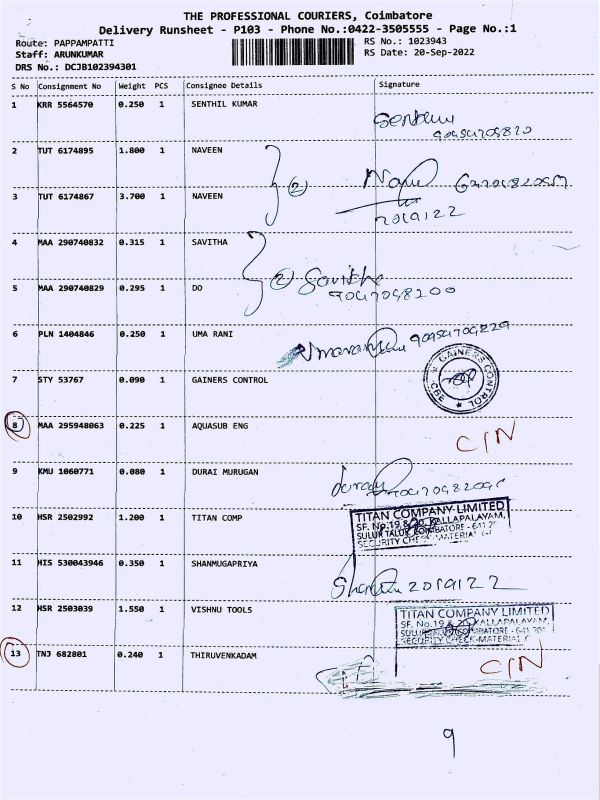 THE PROFESSIONAL COURIERS, Coimbatore
Delivery Runsheet - P103 - Phone No.:0422-3505555 - Page No.:1
Route: PAPPAMPATTI
Staff: ARUNKUMAR
DRS No.: DCJB102394301
RS No.: 1023943
RS Date: 20-Sep-2022
S No Consignment No Weight PCS Consignee Details Signature
1 KRR 5564570 0.250 1 SENTHIL KUMAR
2 TUT 6174895 1.800 1 NAVEEN
3 TUT 6174867 3.700 1 NAVEEN
(2)
2019122
4 MAA 290740832 0.315 1 SAVITHA
5 MAA 290740829 0.295 1 DO
(2) Savitha
6 PLN 1404846 0.250 1 UMA RANI
7 STY 53767 0.090 1 GAINERS CONTROL
GAINERS CONTROL CBE
8 MAA 295948063 0.225 1 AQUASUB ENG C/N
9 KMU 1060771 0.080 1 DURAI MURUGAN
10 HSR 2502992 1.200 1 TITAN COMP
TITAN COMPANY LIMITED
SF. No.19 & 20, KALLAPALAYAM,
SULUR TALUK, COIMBATORE - 641 20
SECURITY CHECK-MATERIAL
11 HIS 530043946 0.350 1 SHANMUGAPRIYA
2019122
12 HSR 2503039 1.550 1 VISHNU TOOLS
TITAN COMPANY LIMITED
SF. No.19 & 20, KALLAPALAYAM,
SECURITY CHECK-MATERIAL
13 TNJ 682801 0.240 1 THIRUVENKADAM C/N
9